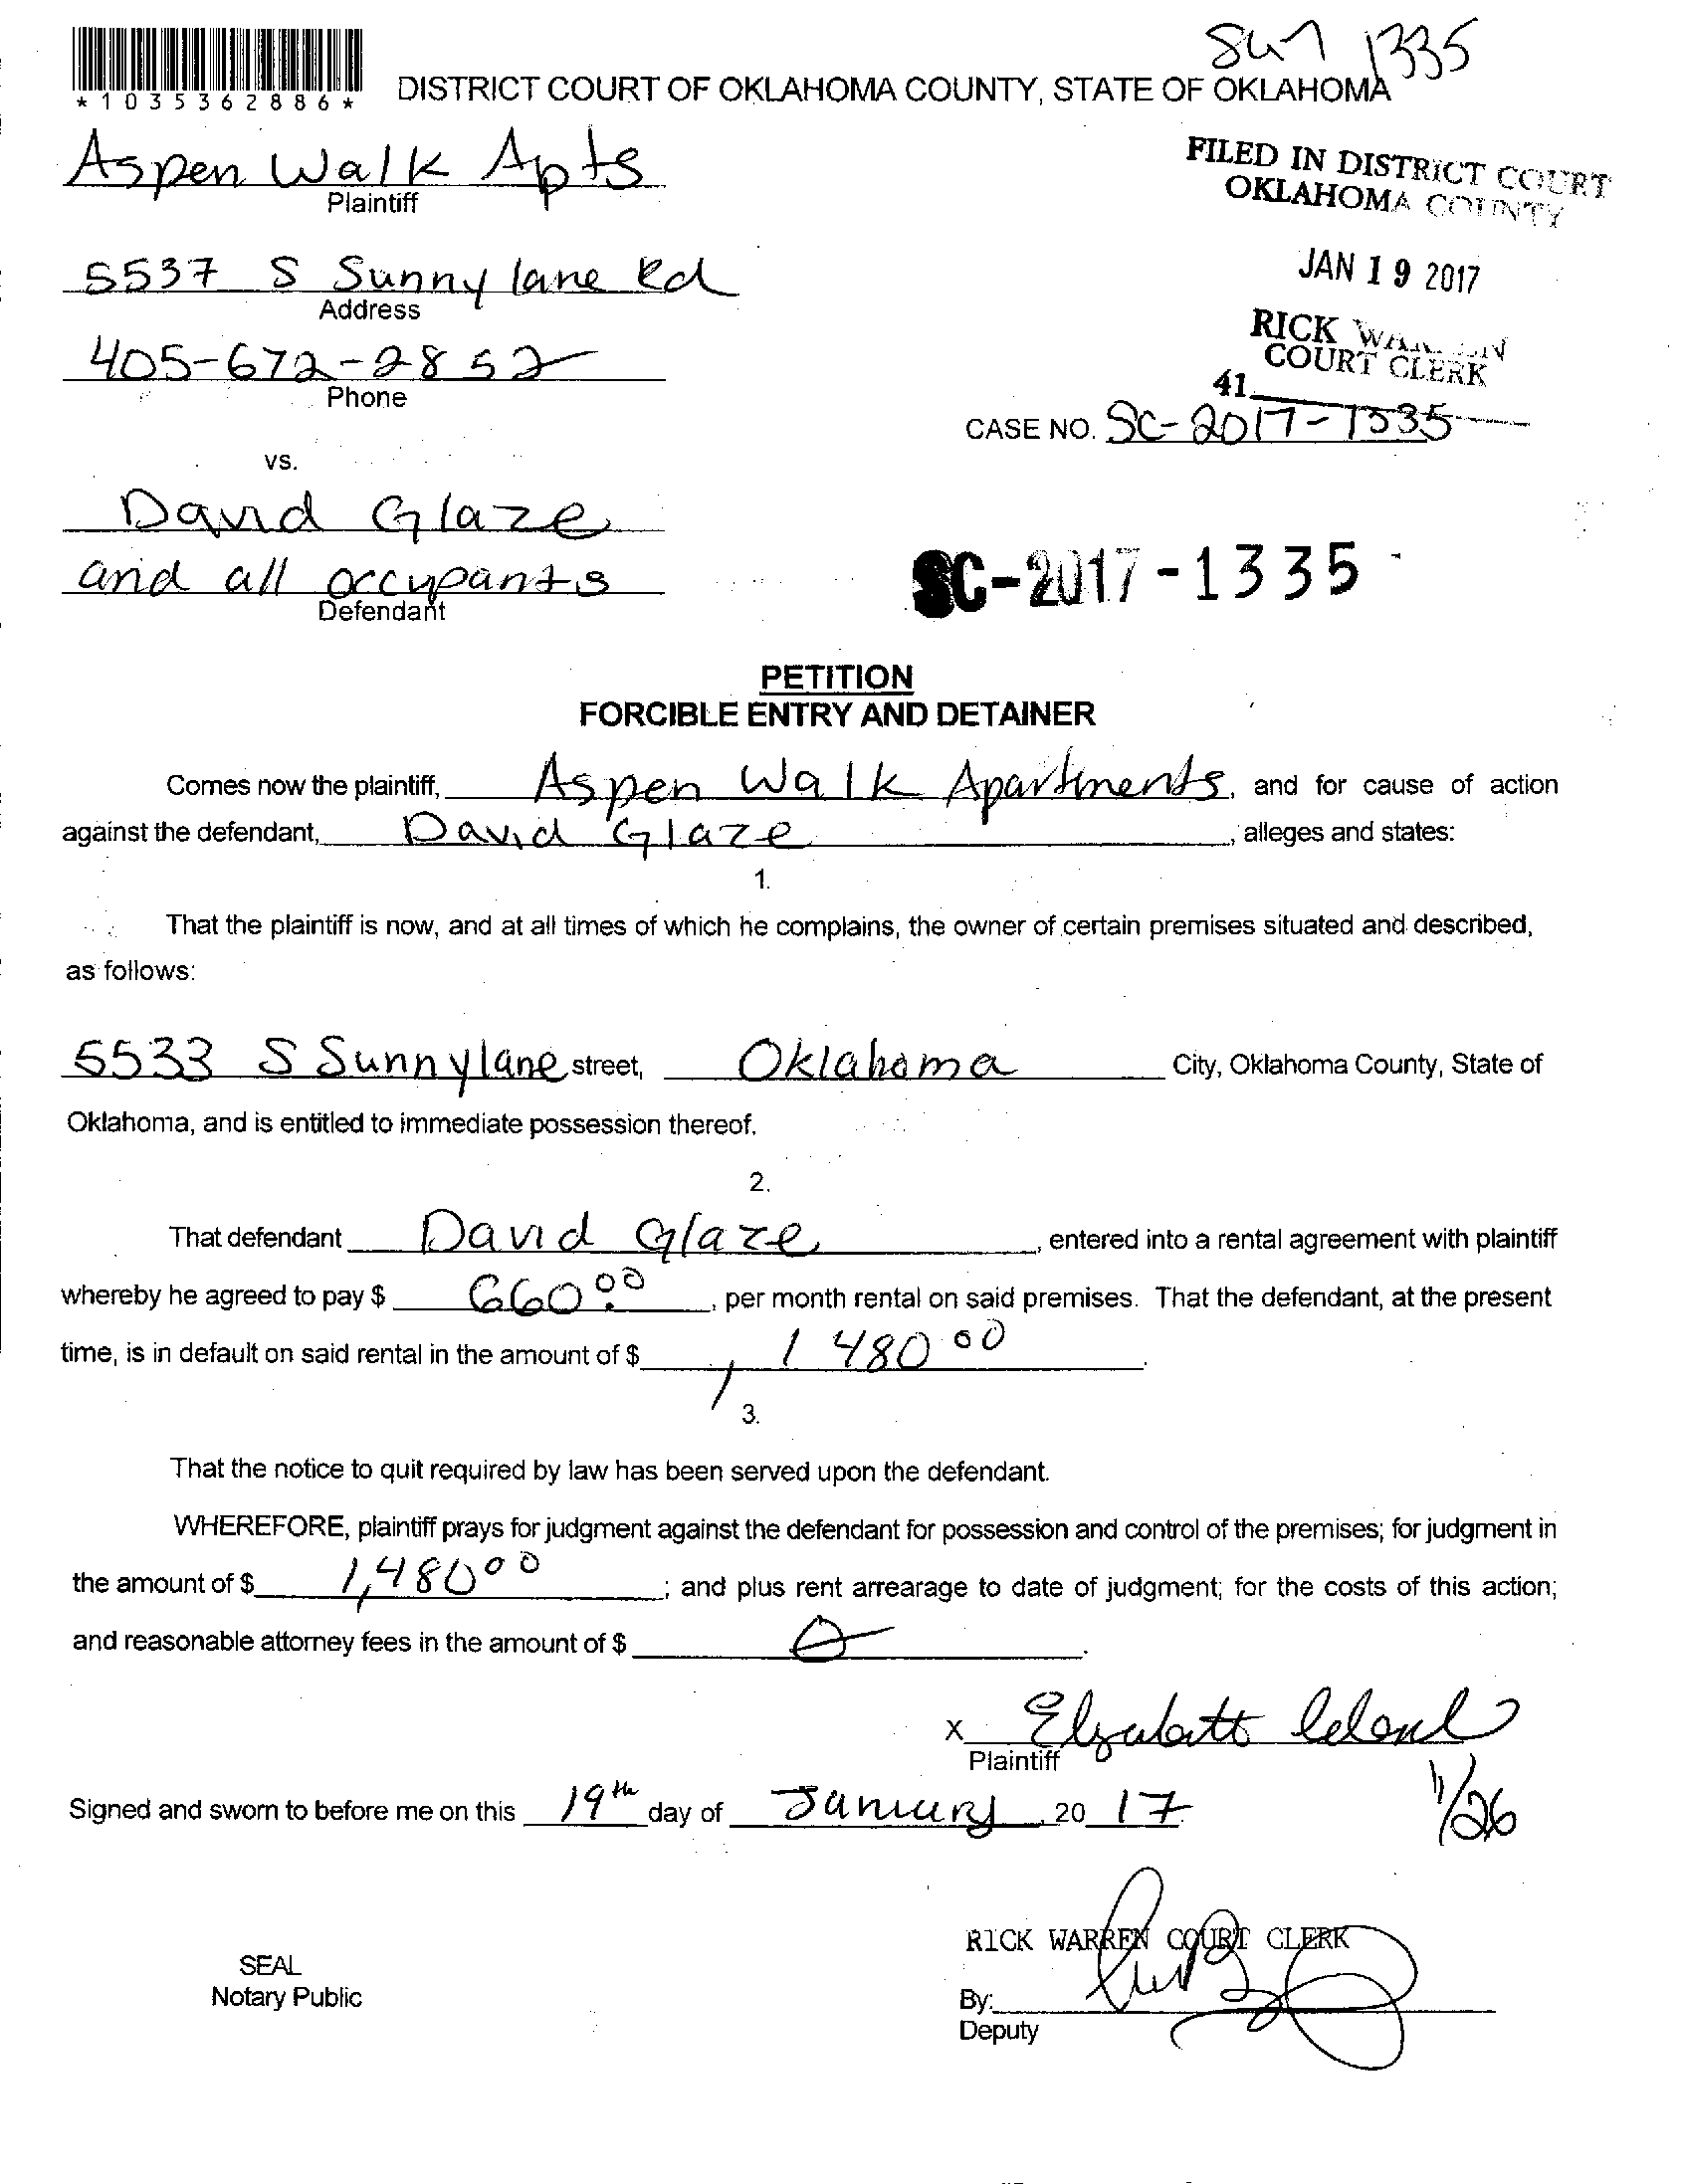 1335
*1035362886*
DISTRICT COURT OF OKLAHOMA COUNTY, STATE OF OKLAHOMA
Aspen Walk Apts
Plaintiff
FILED IN DISTRICT COURT
OKLAHOMA COUNTY
5537 S Sunny lane Rd
Address
JAN 19 2017
405-672-2852
Phone
RICK
COURT CLERK
41
CASE NO. SC-2017-1335
vs.
David Glaze
and all occupants
Defendant
SC-2017-1335
PETITION
FORCIBLE ENTRY AND DETAINER
Comes now the plaintiff, Aspen Walk Apartments, and for cause of action
against the defendant, David Glaze, alleges and states:
1.
That the plaintiff is now, and at all times of which he complains, the owner of certain premises situated and described,
as follows:
5533 S Sunnylane street, Oklahoma City, Oklahoma County, State of
Oklahoma, and is entitled to immediate possession thereof.
2.
That defendant David Glaze, entered into a rental agreement with plaintiff
whereby he agreed to pay $ 660.00, per month rental on said premises. That the defendant, at the present
time, is in default on said rental in the amount of $ 1,480 00.
3.
That the notice to quit required by law has been served upon the defendant.
WHEREFORE, plaintiff prays for judgment against the defendant for possession and control of the premises; for judgment in
the amount of $ 1,480 00; and plus rent arrearage to date of judgment; for the costs of this action;
and reasonable attorney fees in the amount of $ 0.
X Elizabeth
Plaintiff
Signed and sworn to before me on this 19th day of January, 20 17
1/26
RICK WARREN COURT CLERK
SEAL
Notary Public
By:
Deputy